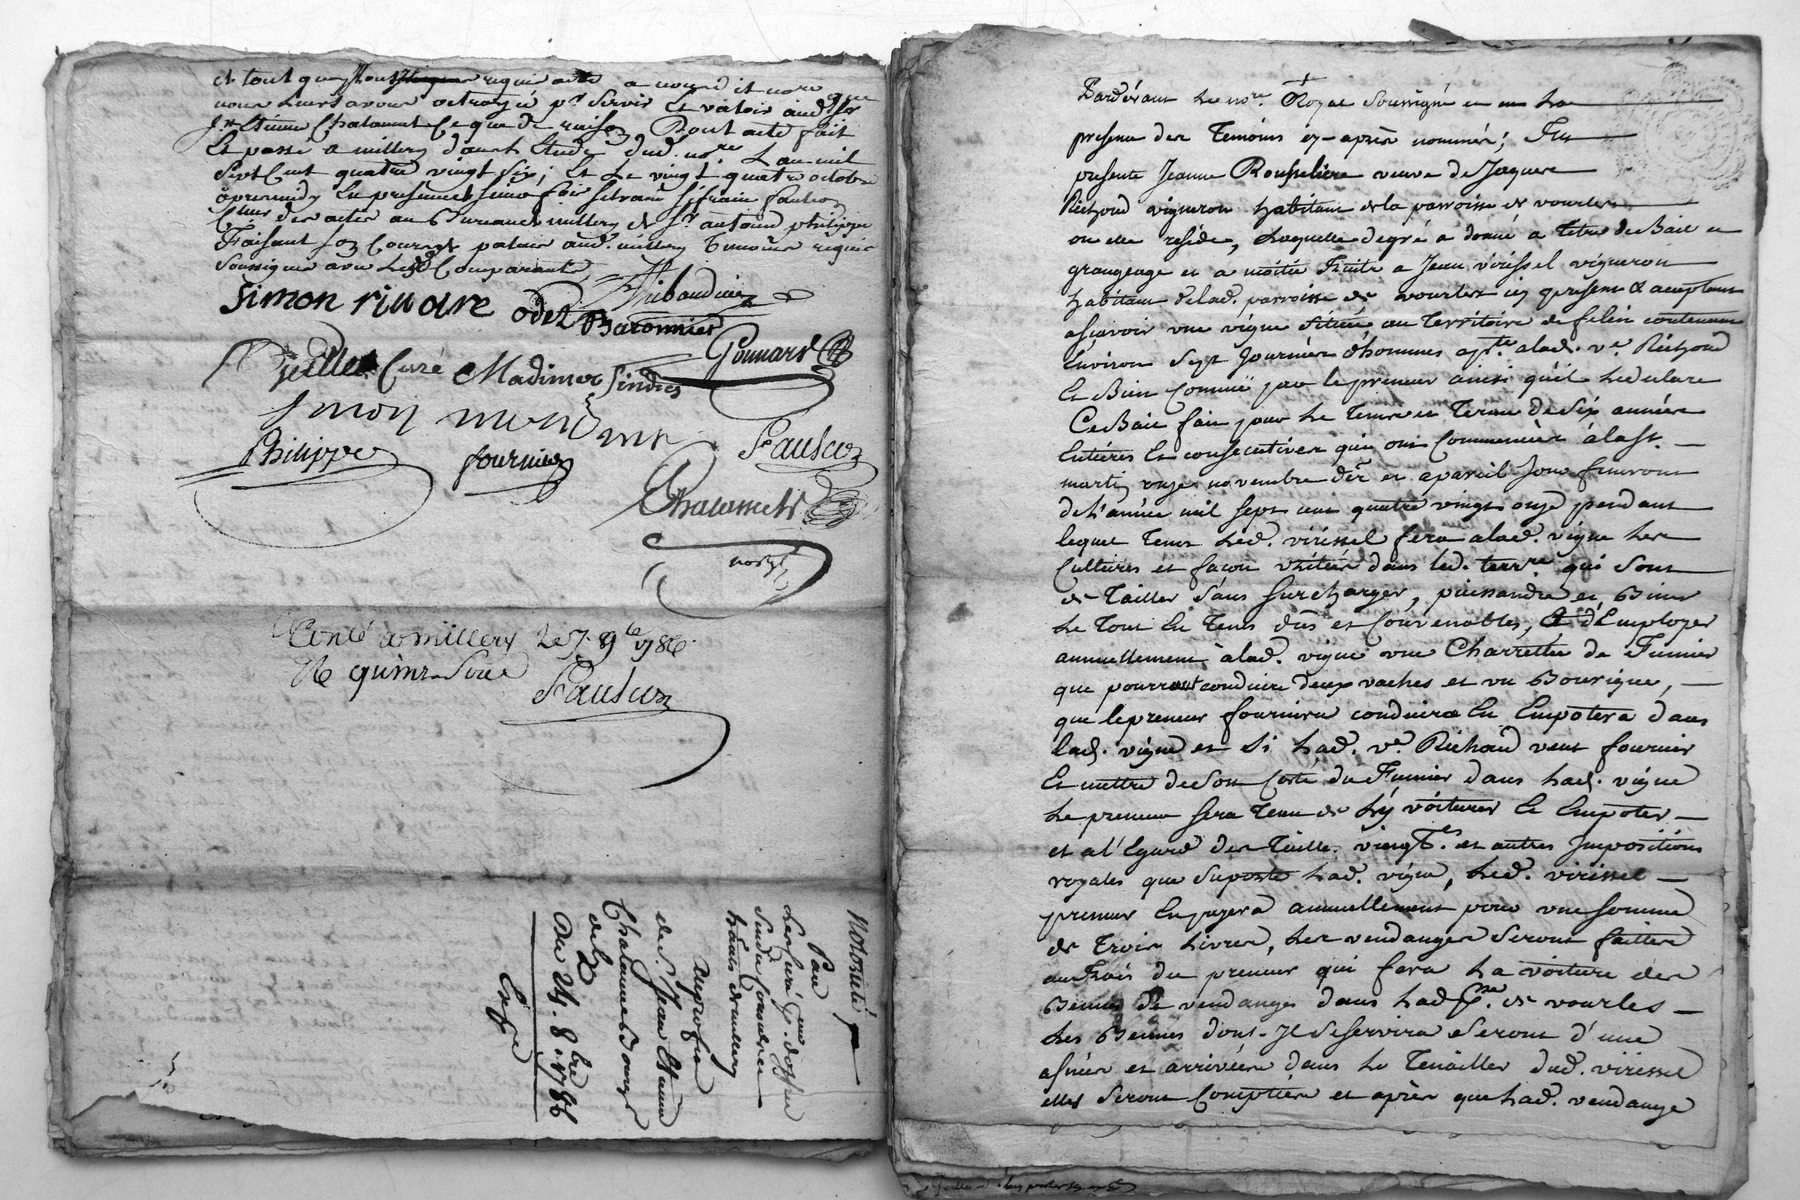 et tout quoy requis acte
nous leurs avons octroyé pr servir et valoir aud. Sr
Jn Etienne Chalamet Ce que de raison Dont acte fait
Et passé a millery dans l'Etude dud. nore L'an mil
Sept Cent quatre vingt Six; Et Le vingt quatre octobre
après midy En presence de
Clerc des actes au Bureau de millery et Sr antoine philippe
Faisant Son Courrant patuis aud. millery Temoins requis
Soussignes avec Lesd. Comparants
Simon rivoire odet Thibaudier
Baronnier
Ponnard
Curé Madinier Sindic
Simon
Philippe fournier Faulcon
Chalamet
nore
Conlé a millery Le 7. 9bre 1786
Rc quinze Sous
Faulcon
Notorieté
Par
Les Curé
Sindic Consuls et
habts de millery
au profit
de Sr. Jean Etienne
Chalamet Bourgs
de
Du 24. 8bre 1786
Expe
Pardevant Le nore. Royal Soussigné et en La
presence des Temoins cy-après nommés; Fut
presente Jeanne Rousseliere veuve de Jaques
Richoud vigneron habitant de la parroisse de vourles
ou elle reside, Laquelle de gré a donné a titre de Bail a
grangeage et a moitié Fruits a Jean viressel vigneron
habitant de lad. parroisse de vourles icy present et acceptant
asçavoir une vigne Située au Territoire de felin contenant
Environ Sept Journées d'hommes apte. a lad. ve. Richoud
Et Bien Connue par le preneur ainsi qu'il Le declare
Ce Bail fait pour Le Tems et Terme de Six années
Entieres Et consecutives qui ont Commencées à la St.
martin onze novembre der et a pareil Jour finiront
de L'année mil sept cent quatre vingt onze pendant
lequel Tems Led. viressel fera a lad. vigne Les
Cultures et façons usitées dans led. terre. qui Sont
de Tailler Sans Surcharger, et Biner
Le Tout En Tems dus et Convenables, Et d'Employer
annuellement à lad. vigne une Charretée de Fumier
que pourront conduire deux vaches et un Bourique,
que le preneur fournira conduira Et Empotera dans
lad. vigne et Si Lad. ve. Richoud veut fournir
Et mettre de Son Costé du Fumier dans Lad. vigne
Le preneur Sera Tenu de L'y voiturer Et Empoter
et a l'Egard des Tailles. vingt.es et autres Impositions
royales que Suporte Lad. vigne, Led. viressel
preneur En payera annuellement pour une Somme
de Trois Livres, Les vendanges Seront faittes
aux Frais du preneur qui fera La voiture des
Bennes de vendanges dans Lad. de vourles
Les Bennes dont Il Se Servira Seront d'une
asnée et arrivées dans Le Tenailler dud. viressel
elles Seront Comptées et après que Lad. vendange